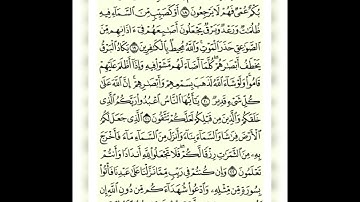 بُكْمٌ عُمْىٌ فَهُمْ لَا يَرْجِعُونَ ١٨ أَوْ كَصَيِّبٍ مِّنَ ٱلسَّمَآءِ فِيهِ
ظُلُمَٰتٌ وَرَعْدٌ وَبَرْقٌ يَجْعَلُونَ أَصَٰبِعَهُمْ فِىٓ ءَاذَانِهِم مِّنَ
ٱلصَّوَٰعِقِ حَذَرَ ٱلْمَوْتِ وَٱللَّهُ مُحِيطٌۢ بِٱلْكَٰفِرِينَ ١٩ يَكَادُ ٱلْبَرْقُ
يَخْطَفُ أَبْصَٰرَهُمْ كُلَّمَآ أَضَآءَ لَهُم مَّشَوْا۟ فِيهِ وَإِذَآ أَظْلَمَ عَلَيْهِمْ
قَامُوا۟ وَلَوْ شَآءَ ٱللَّهُ لَذَهَبَ بِسَمْعِهِمْ وَأَبْصَٰرِهِمْ إِنَّ ٱللَّهَ عَلَىٰ
كُلِّ شَىْءٍ قَدِيرٌ ٢٠ يَٰٓأَيُّهَا ٱلنَّاسُ ٱعْبُدُوا۟ رَبَّكُمُ ٱلَّذِى
خَلَقَكُمْ وَٱلَّذِينَ مِن قَبْلِكُمْ لَعَلَّكُمْ تَتَّقُونَ ٢١ ٱلَّذِى جَعَلَ لَكُمُ
ٱلْأَرْضَ فِرَٰشًا وَٱلسَّمَآءَ بِنَآءً وَأَنزَلَ مِنَ ٱلسَّمَآءِ مَآءً فَأَخْرَجَ
بِهِۦ مِنَ ٱلثَّمَرَٰتِ رِزْقًا لَّكُمْ فَلَا تَجْعَلُوا۟ لِلَّهِ أَندَادًا وَأَنتُمْ
تَعْلَمُونَ ٢٢ وَإِن كُنتُمْ فِى رَيْبٍ مِّمَّا نَزَّلْنَا عَلَىٰ عَبْدِنَا فَأْتُوا۟
بِسُورَةٍ مِّن مِّثْلِهِۦ وَٱدْعُوا۟ شُهَدَآءَكُم مِّن دُونِ ٱللَّهِ إِن